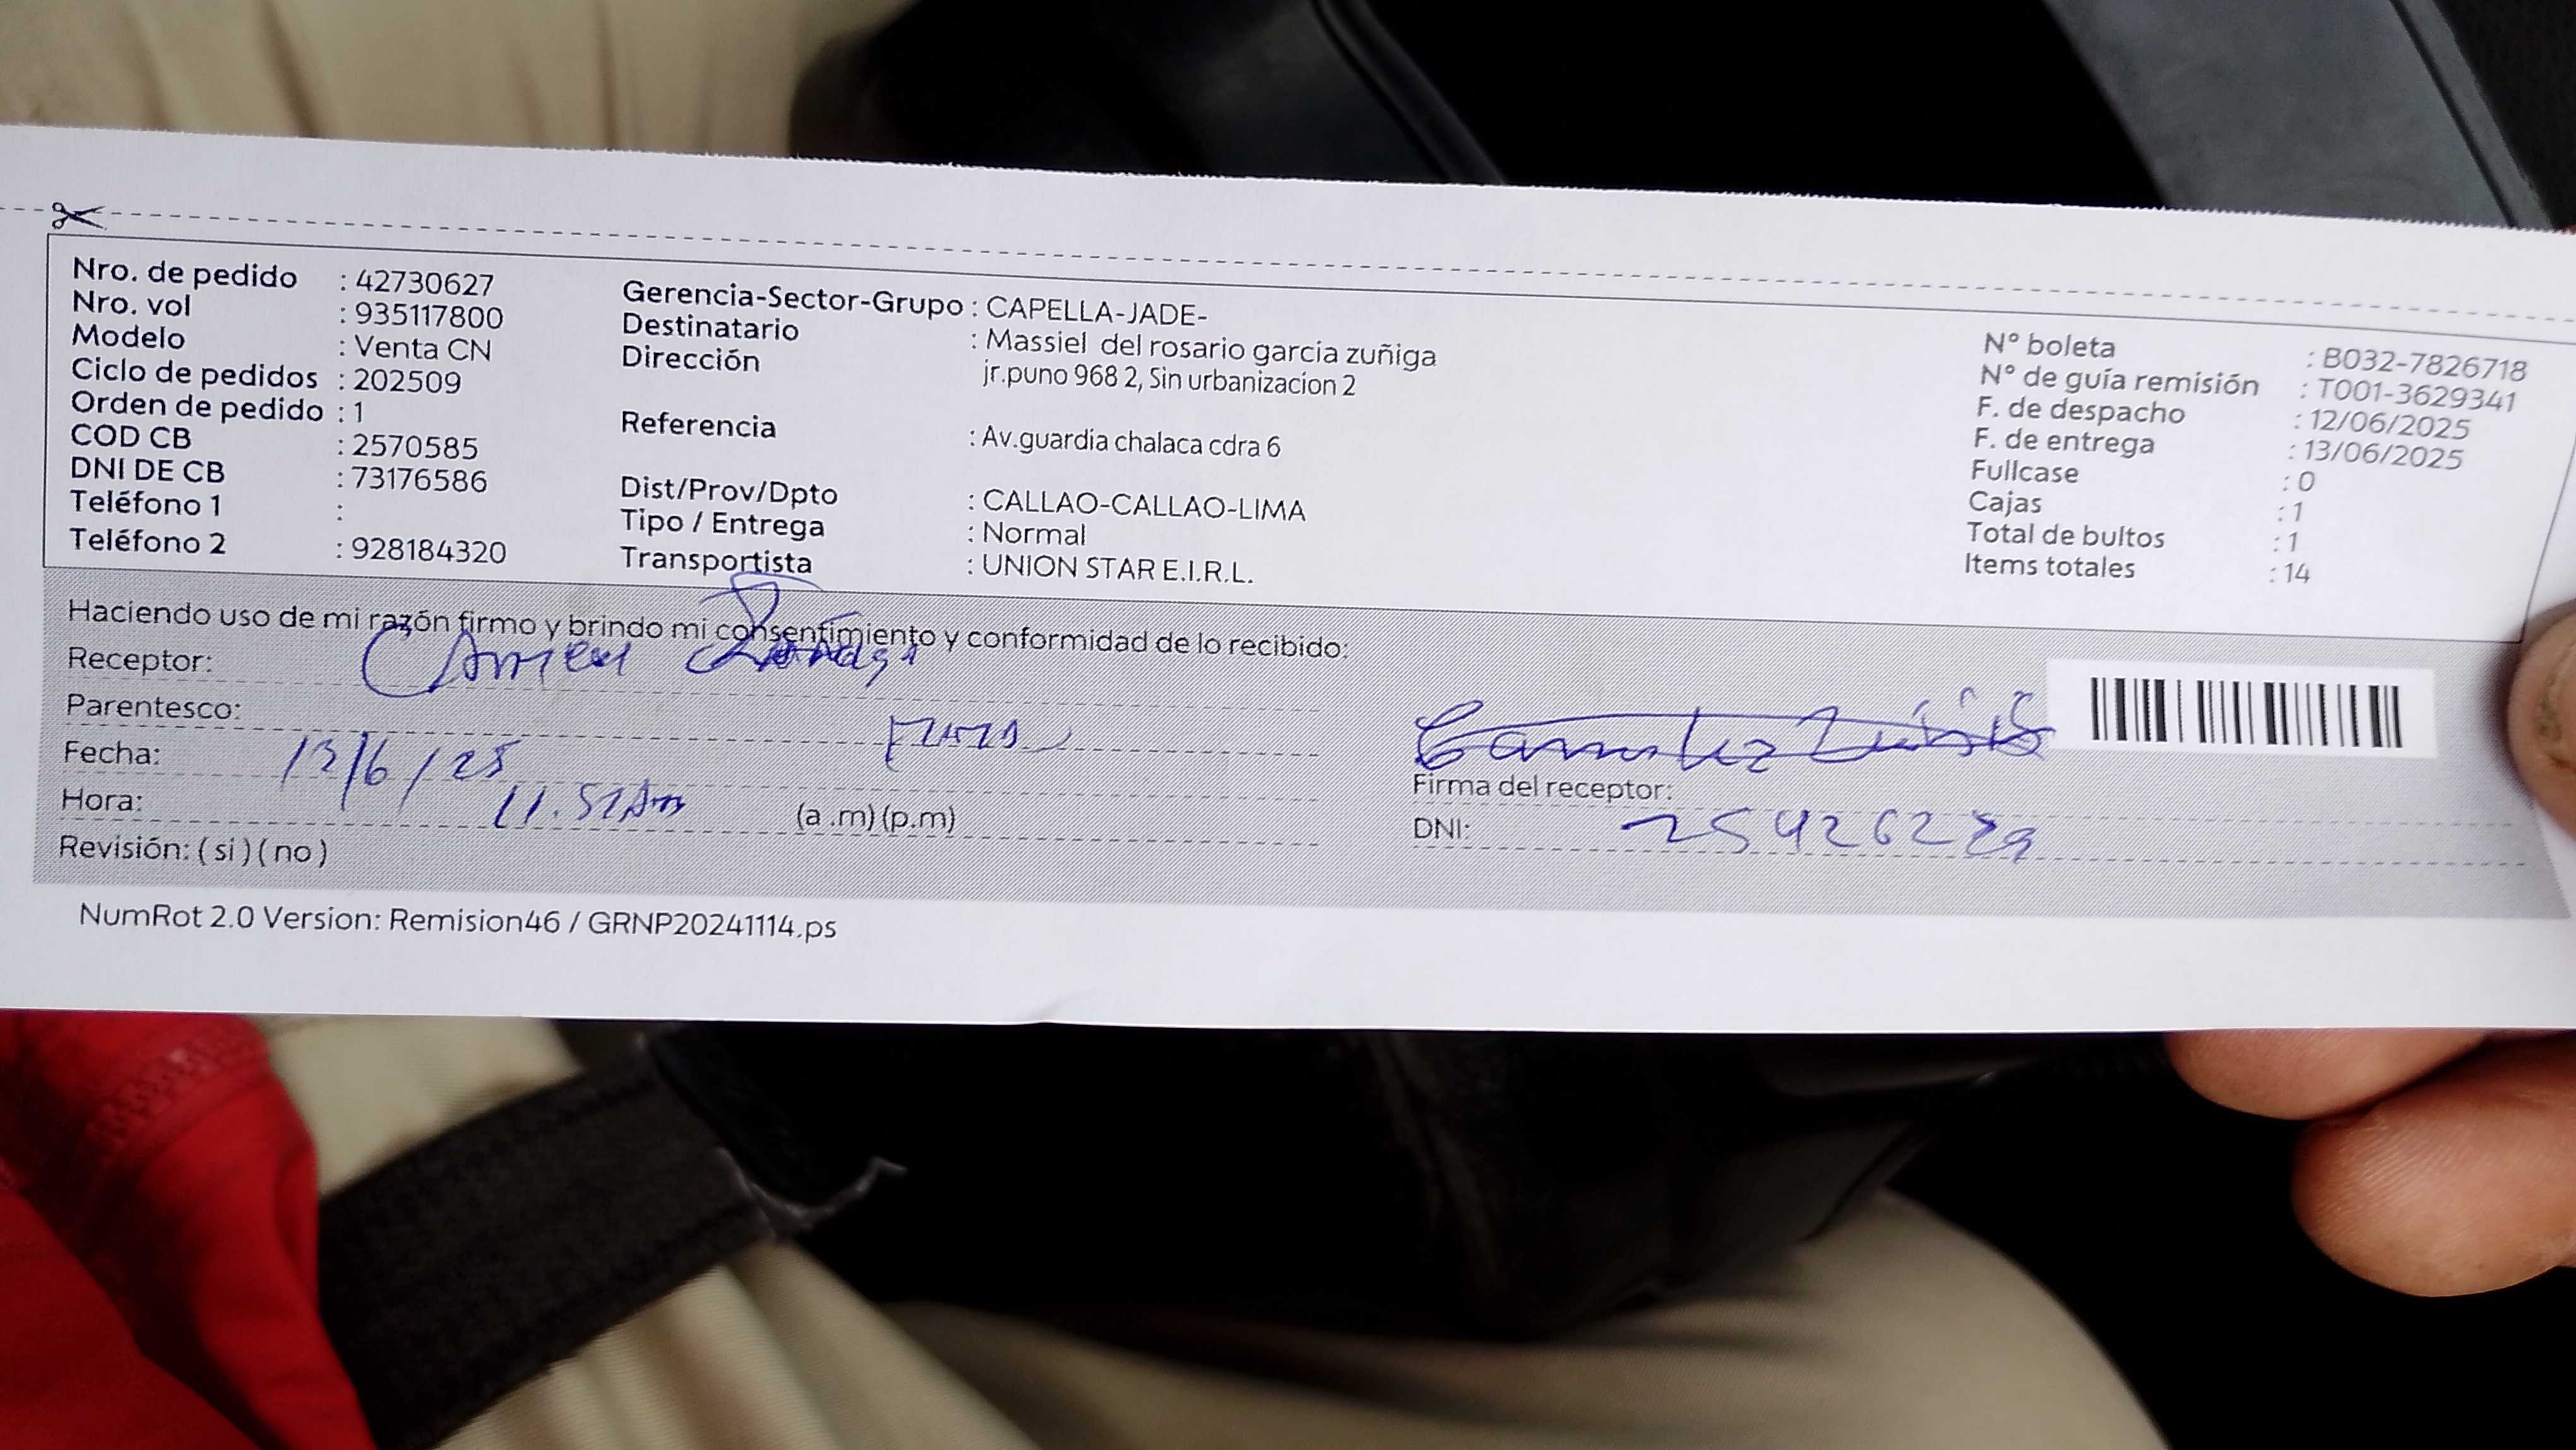 Nro. de pedido : 42730627
Nro. vol : 935117800
Modelo : Venta CN
Ciclo de pedidos : 202509
Orden de pedido : 1
COD CB : 2570585
DNI DE CB : 73176586
Teléfono 1 :
Teléfono 2 : 928184320
Gerencia-Sector-Grupo : CAPELLA-JADE-
Destinatario : Massiel del rosario garcia zuñiga
Dirección jr.puno 968 2, Sin urbanizacion 2
Referencia : Av.guardia chalaca cdra 6
Dist/Prov/Dpto : CALLAO-CALLAO-LIMA
Tipo / Entrega : Normal
Transportista : UNION STAR E.I.R.L.
N° boleta : B032-7826718
N° de guía remisión : T001-3629341
F. de despacho : 12/06/2025
F. de entrega : 13/06/2025
Fullcase : 0
Cajas : 1
Total de bultos : 1
Items totales : 14
Haciendo uso de mi razón firmo y brindo mi consentimiento y conformidad de lo recibido:
Receptor:
Parentesco:
Fecha: 13/6/25
Hora: (a .m) (p.m)
Revisión: ( si ) ( no )
Firma del receptor:
DNI:
NumRot 2.0 Version: Remision46 / GRNP20241114.ps